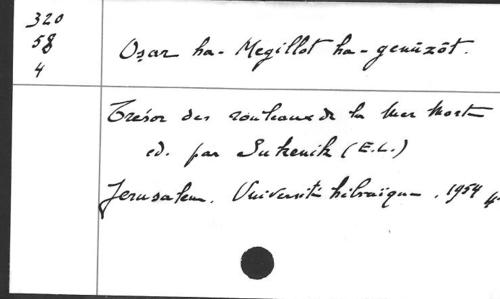 320
58
4
Oṣar ha-Megillot ha-genūzōt.
Trésor des rouleaux de la Mer Morte
ed. par Sukenik (E.L.)
Jerusalem. Université hébraïque. 1954 4°